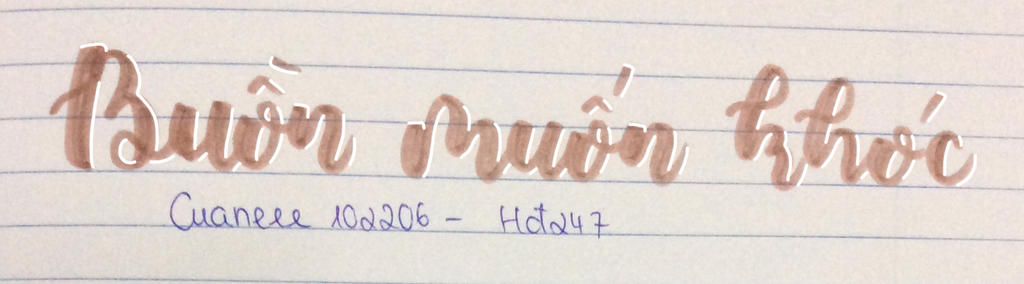 Buồn muốn khóc
Cuaneee 102206 - Hđ247